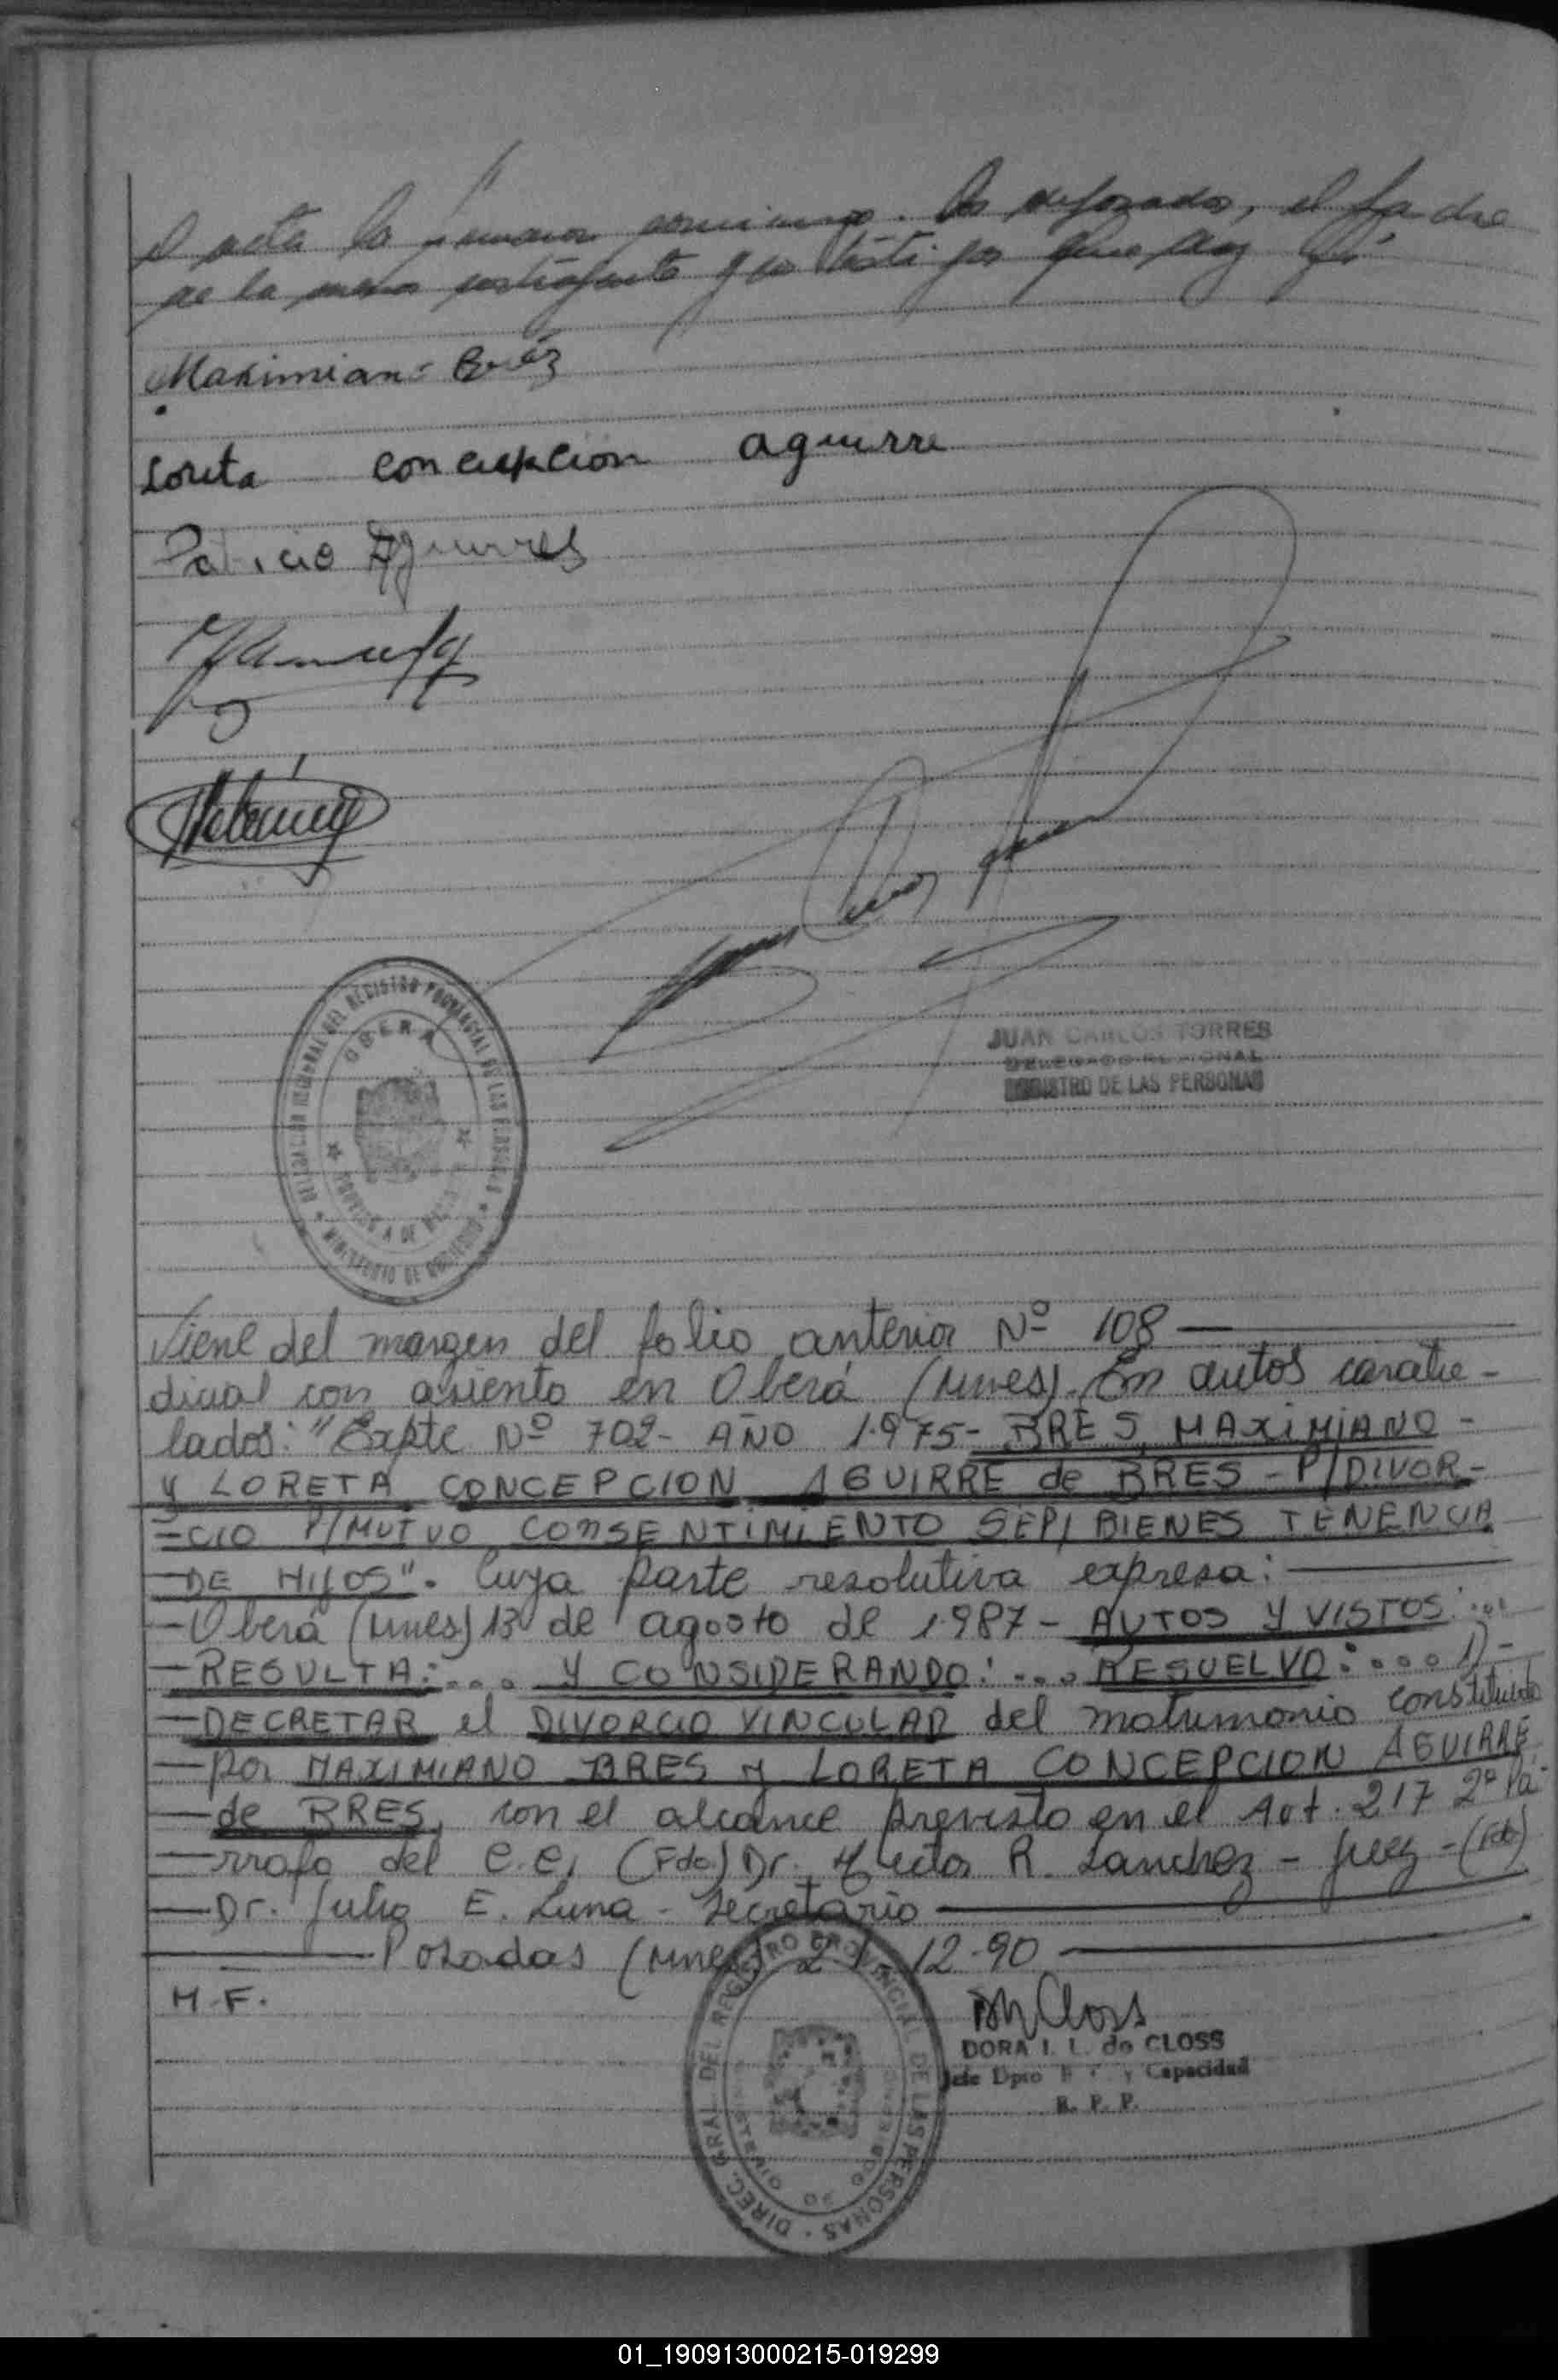 el acta la firman conmigo los desposados, el padre
de la menor contrayente y los testigos que doy fé
Maximiano Brés
Loreta concepcion aguirre
Patricio Aguirres
DELEGACION REGIONAL DEL REGISTRO PROVINCIAL DE LAS PERSONAS
OBERA
PROVINCIA DE MISIONES
MINISTERIO DE GOBIERNO
JUAN CARLOS TORRES
DELEGADO REGIONAL
REGISTRO DE LAS PERSONAS
Viene del margen del folio anterior Nº 108
dicial con asiento en Oberá (Mnes). En autos caratu-
lados: "Expte Nº 702- AÑO 1.975- BRES, MAXIMIANO -
Y LORETA CONCEPCION AGUIRRE de BRES - P/DIVOR-
=CIO P/MUTUO CONSENTIMIENTO SEP/ BIENES TENENCIA
DE HIJOS". Cuya parte resolutiva expresa:
-Oberá (Mnes) 13 de agosto de 1.987- AUTOS Y VISTOS:...
-RESULTA:... Y CONSIDERANDO:... RESUELVO:... 1)-
-DECRETAR el DIVORCIO VINCULAR del matrimonio constituido
-por MAXIMIANO BRES y LORETA CONCEPCION AGUIRRE
-de BRES, con el alcance previsto en el Art. 217 2º Pá-
-rrafo del C.C, (Fdo) Dr. Hector R. Sanchez - Juez - (Fdo)
-Dr. Julio E. Luna - Secretario
Posadas (Mnes) 21 12-90
M.F.
DIREC. GRAL. DEL REGISTRO PROVINCIAL DE LAS PERSONAS
MINISTERIO DE GOBIERNO
DORA I. L. de CLOSS
Jefe Dpto E. C. y Capacidad
R. P. P.
01_190913000215-019299